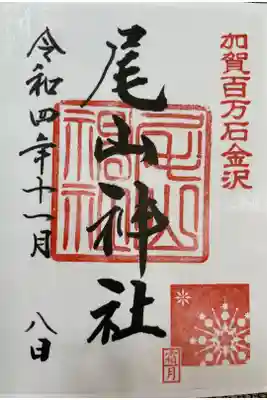 加賀百万石金沢
尾山神社
尾山神社
令和四年十一月 八日
霜月